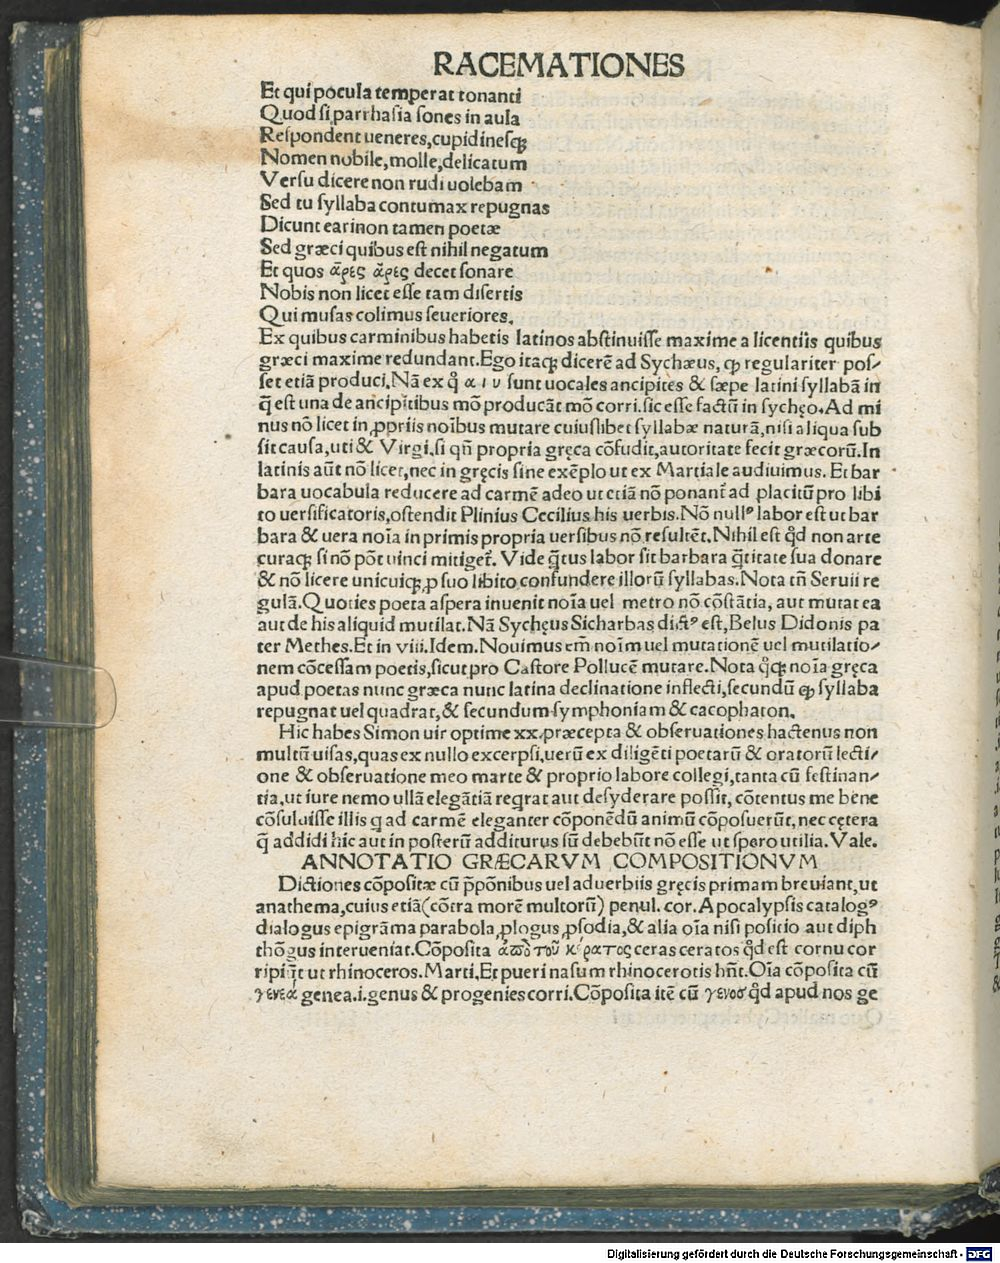 RACEMATIONES
Et qui pocula temperat tonanti
Quod si parrhasia sones in aula
Respondent ueneres, cupidinesq;
Nomen nobile, molle, delicatum
Versu dicere non rudi uolebam
Sed tu syllaba contumax repugnas
Dicunt earinon tamen poetæ
Sed græci quibus est nihil negatum
Et quos ἄρες ἄρες decet sonare
Nobis non licet esse tam disertis
Qui musas colimus seueriores.
Ex quibus carminibus habetis latinos abstinuisse maxime a licentiis quibus
græci maxime redundant. Ego itaq; dicerē ad Sychæus, ꝙ regulariter pos⸗
set etiā produci. Nā ex q̊ α ι υ sunt uocales ancipites & sæpe latini syllabā in
q̄ est una de ancipitibus mō producāt mō corri. sic esse factū in sychęo. Ad mi
nus nō licet in ꝓpriis noībus mutare cuiuslibet syllabæ naturā, nisi aliqua sub
sit causa, uti & Virgi. si qñ propria gręca cōfudit, autoritate fecit græcorū. In
latinis aūt nō licet, nec in gręcis sine exēplo ut ex Martiale audiuimus. Et bar
bara uocabula reducere ad carmē adeo ut etiā nō ponant̄ ad placitū pro libi
to uersificatoris, ostendit Plinius Cecilius his uerbis. Nō nullꝰ labor est ut bar
bara & uera noīa in primis propria uersibus nō resultēt. Nihil est q̊d non arte
curaq; si nō pōt uinci mitiget̄. Vide q̄tus labor sit barbara q̄titate sua donare
& nō licere unicuiq; ꝓ suo libito confundere illorū syllabas. Nota tñ Seruii re
gulā. Quoties poeta aspera inuenit noīa uel metro nō cōstātia, aut mutat ea
aut de his aliquid mutilat. Nā Sychęus Sicharbas dictꝰ est, Belus Didonis pa
ter Methes. Et in viii. Idem. Nouimus em̄ noīm uel mutationē uel mutilatio⸗
nem cōcessam poetis, sicut pro Castore Pollucē mutare. Nota q̊q; noīa gręca
apud poetas nunc græca nunc latina declinatione inflecti, secundū ꝙ syllaba
repugnat uel quadrat, & secundum symphoniam & cacophaton.
Hic habes Simon uir optime xx. præcepta & obseruationes hactenus non
multū uisas, quas ex nullo excerpsi, uerū ex diligēti poetarū & oratorū lecti⸗
one & obseruatione meo marte & proprio labore collegi, tanta cū festinan⸗
tia, ut iure nemo ullā elegātiā reqrat aut desyderare possit, cōtentus me bene
cōsuluisse illis q ad carmē eleganter cōponēdū animū cōposuerūt, nec cętera
q̄ addidi hic aut in posterū additurus sū debebūt nō esse ut spero utilia. Vale.
ANNOTATIO GRÆCARVM COMPOSITIONVM
Dictiones cōpositæ cū p̄pōnibus uel aduerbiis gręcis primam breuiant, ut
anathema, cuius etiā (cōtra morē multorū) penul. cor. Apocalypsis catalogꝰ
dialogus epigrāma parabola, ꝓlogus, ꝓsodia, & alia oīa nisi positio aut diph
thōgus interueniat. Cōposita ἀπὸ τοῦ κέρατος ceras ceratos q̊d est cornu cor
ripiūt ut rhinoceros. Marti. Et pueri nasum rhinocerotis hñt. Oīa cōposita cū
γενεά genea .i. genus & progenies corri. Cōposita itē cū γενοσ q̊d apud nos ge
Digitalisierung gefördert durch die Deutsche Forschungsgemeinschaft - DFG